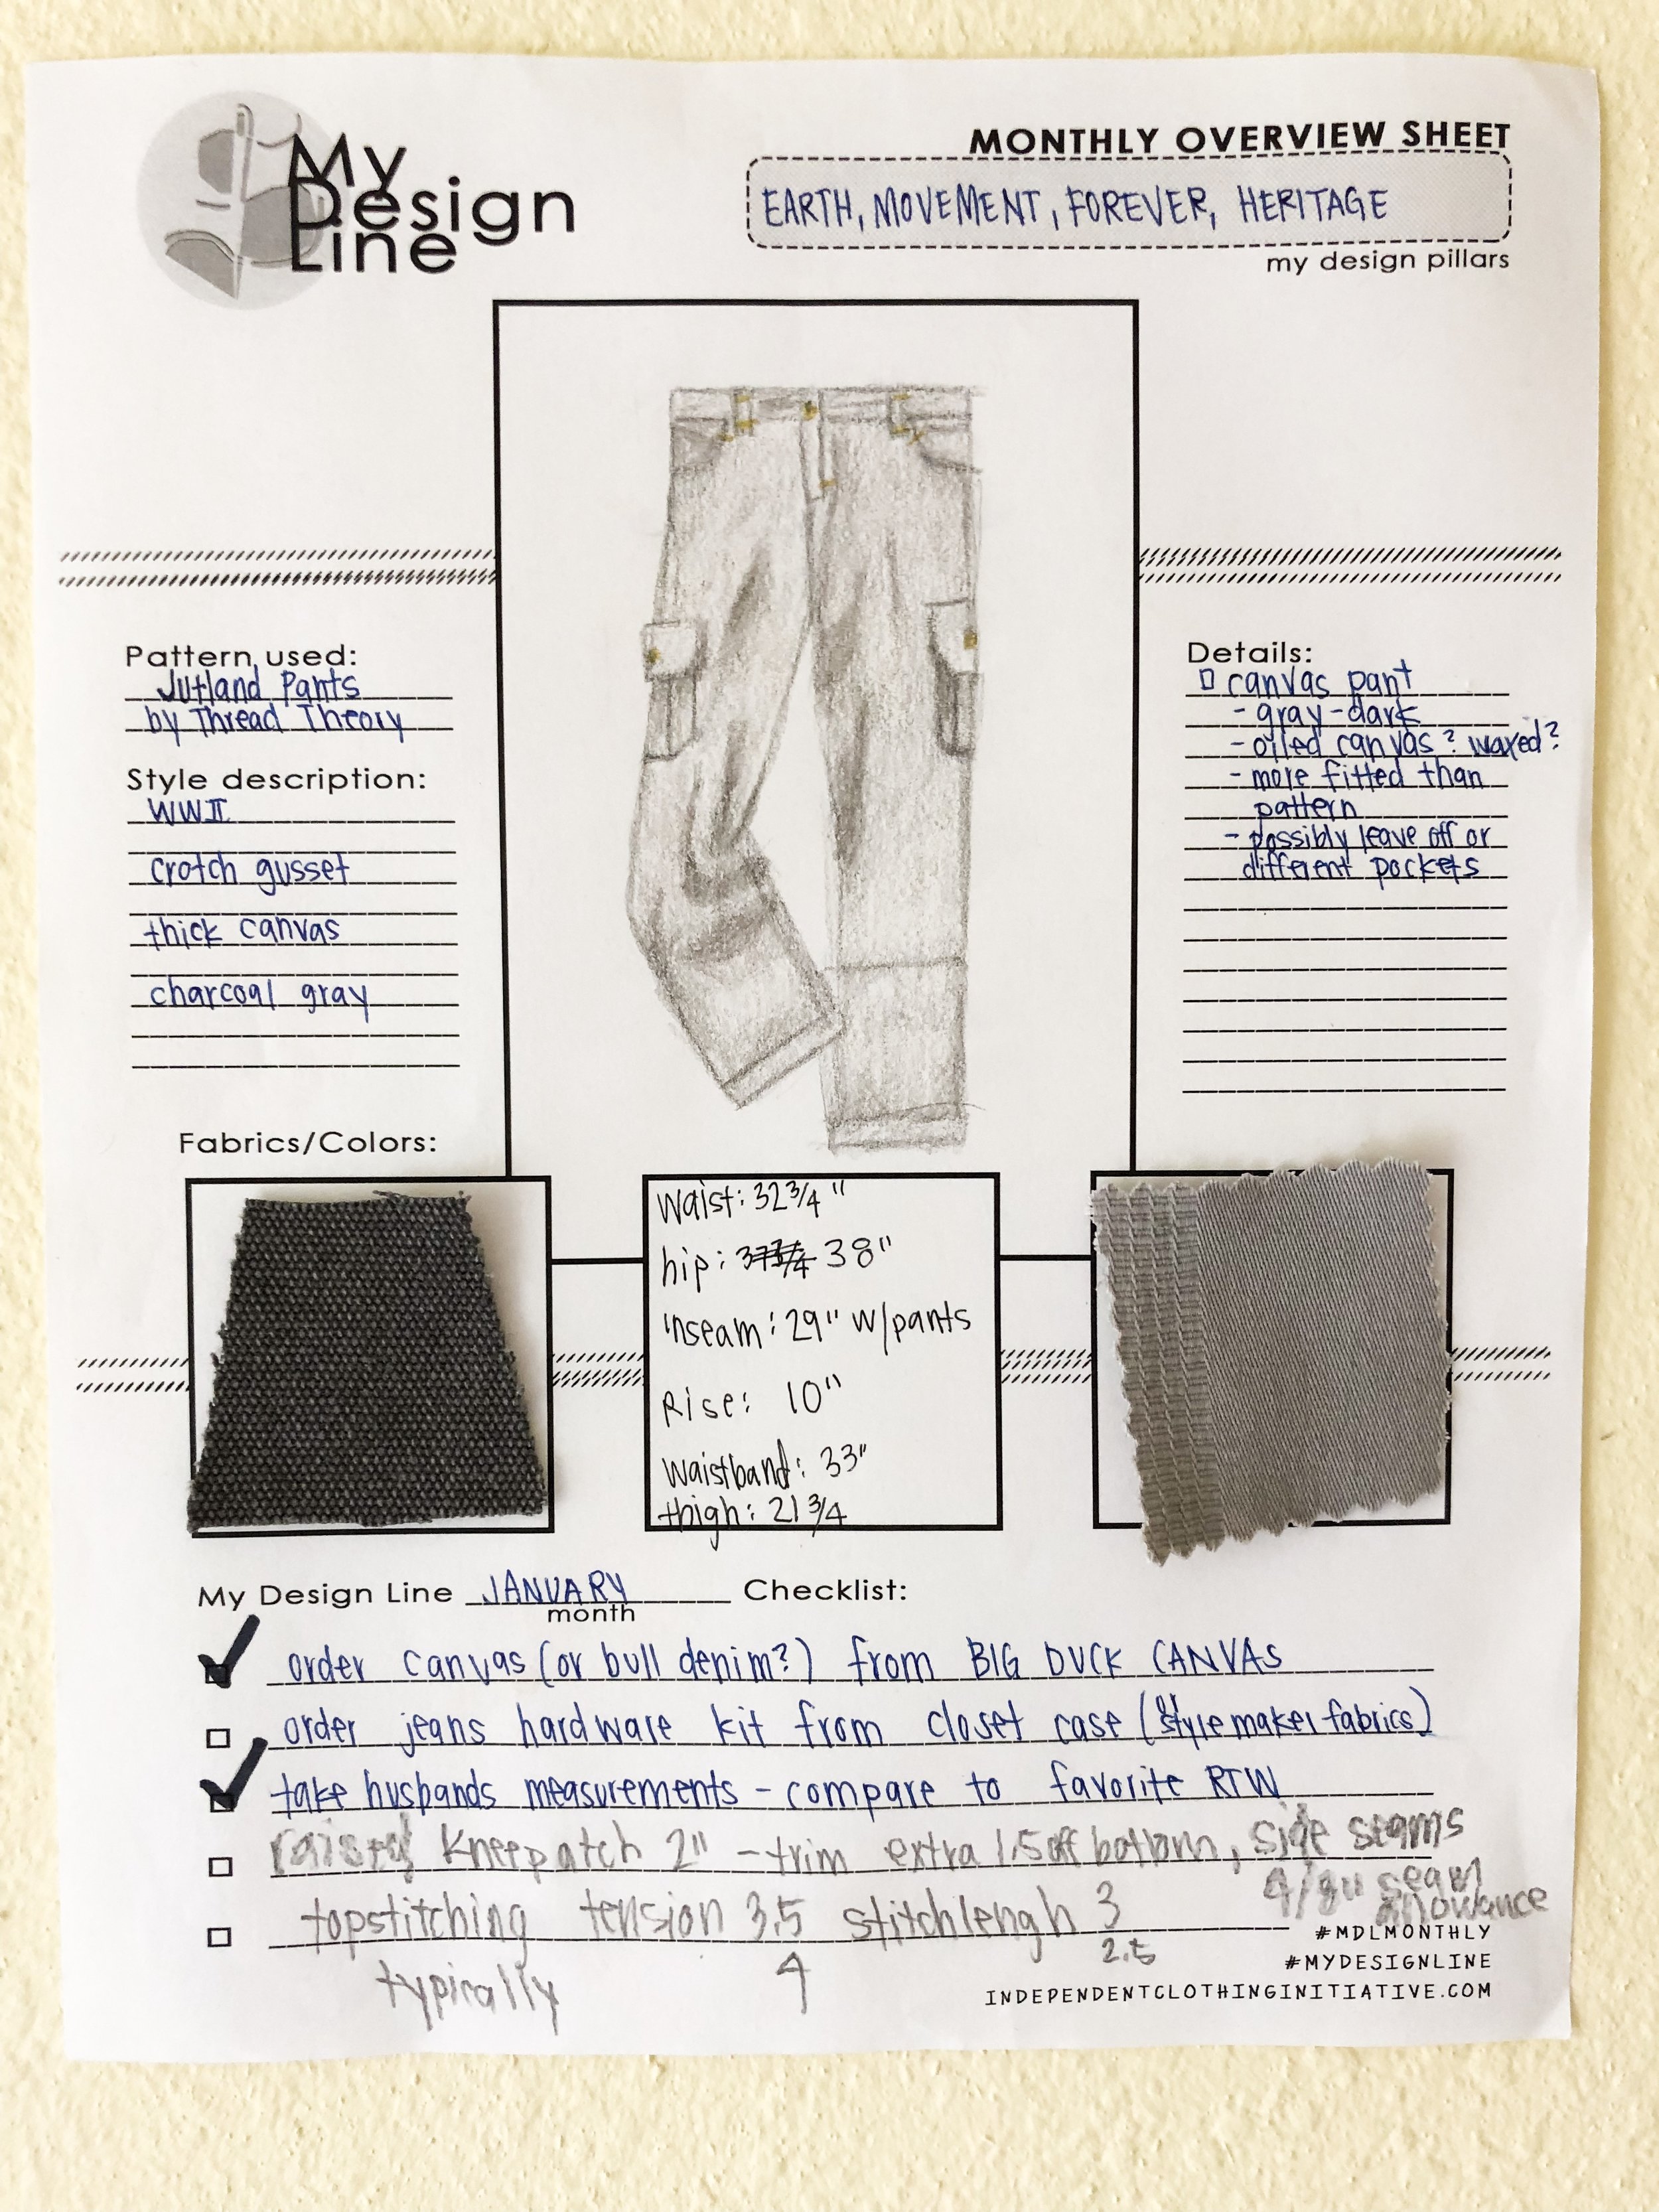 My
Design
Line
MONTHLY OVERVIEW SHEET
EARTH, MOVEMENT, FOREVER, HERITAGE
my design pillars
Pattern used:
Jutland Pants
by Thread Theory
Style description:
WWII
crotch gusset
thick canvas
charcoal gray
Details:
canvas pant
- gray-dark
- oiled canvas? waxed?
- more fitted than
pattern
- possibly leave off or
different pockets
Fabrics/Colors:
Waist: 32 3/4"
hip: 37 3/4 38"
inseam: 29" w/pants
Rise: 10"
Waistband: 33"
thigh: 21 3/4
My Design Line JANUARY Checklist:
month
order canvas (or bull denim?) from BIG DUCK CANVAS
order jeans hardware kit from closet case (or stylemaker fabrics)
take husbands measurements - compare to favorite RTW
raised kneepatch 2" - trim extra 1.5 off bottom, side seams
4/8" seam
allowance
topstitching tension 3.5 stitch lengh 3
typically 4 2.5
#MDLMONTHLY
#MYDESIGNLINE
INDEPENDENTCLOTHINGINITIATIVE.COM